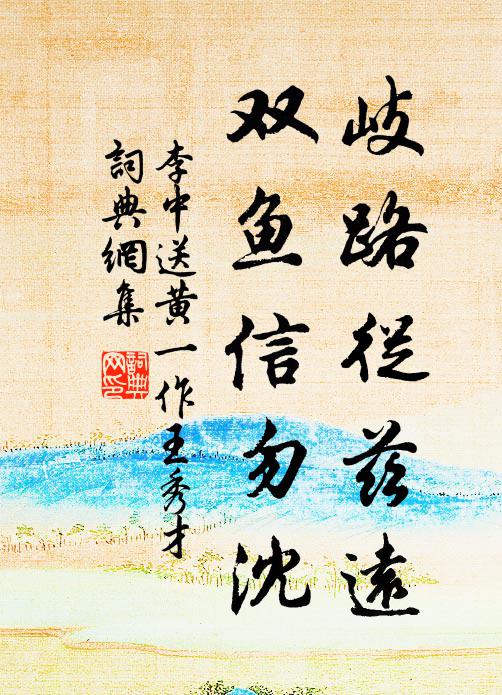 歧路從茲遠
双鱼信勿沈
李中送黄一作王秀才
詞典網集
詞典网印